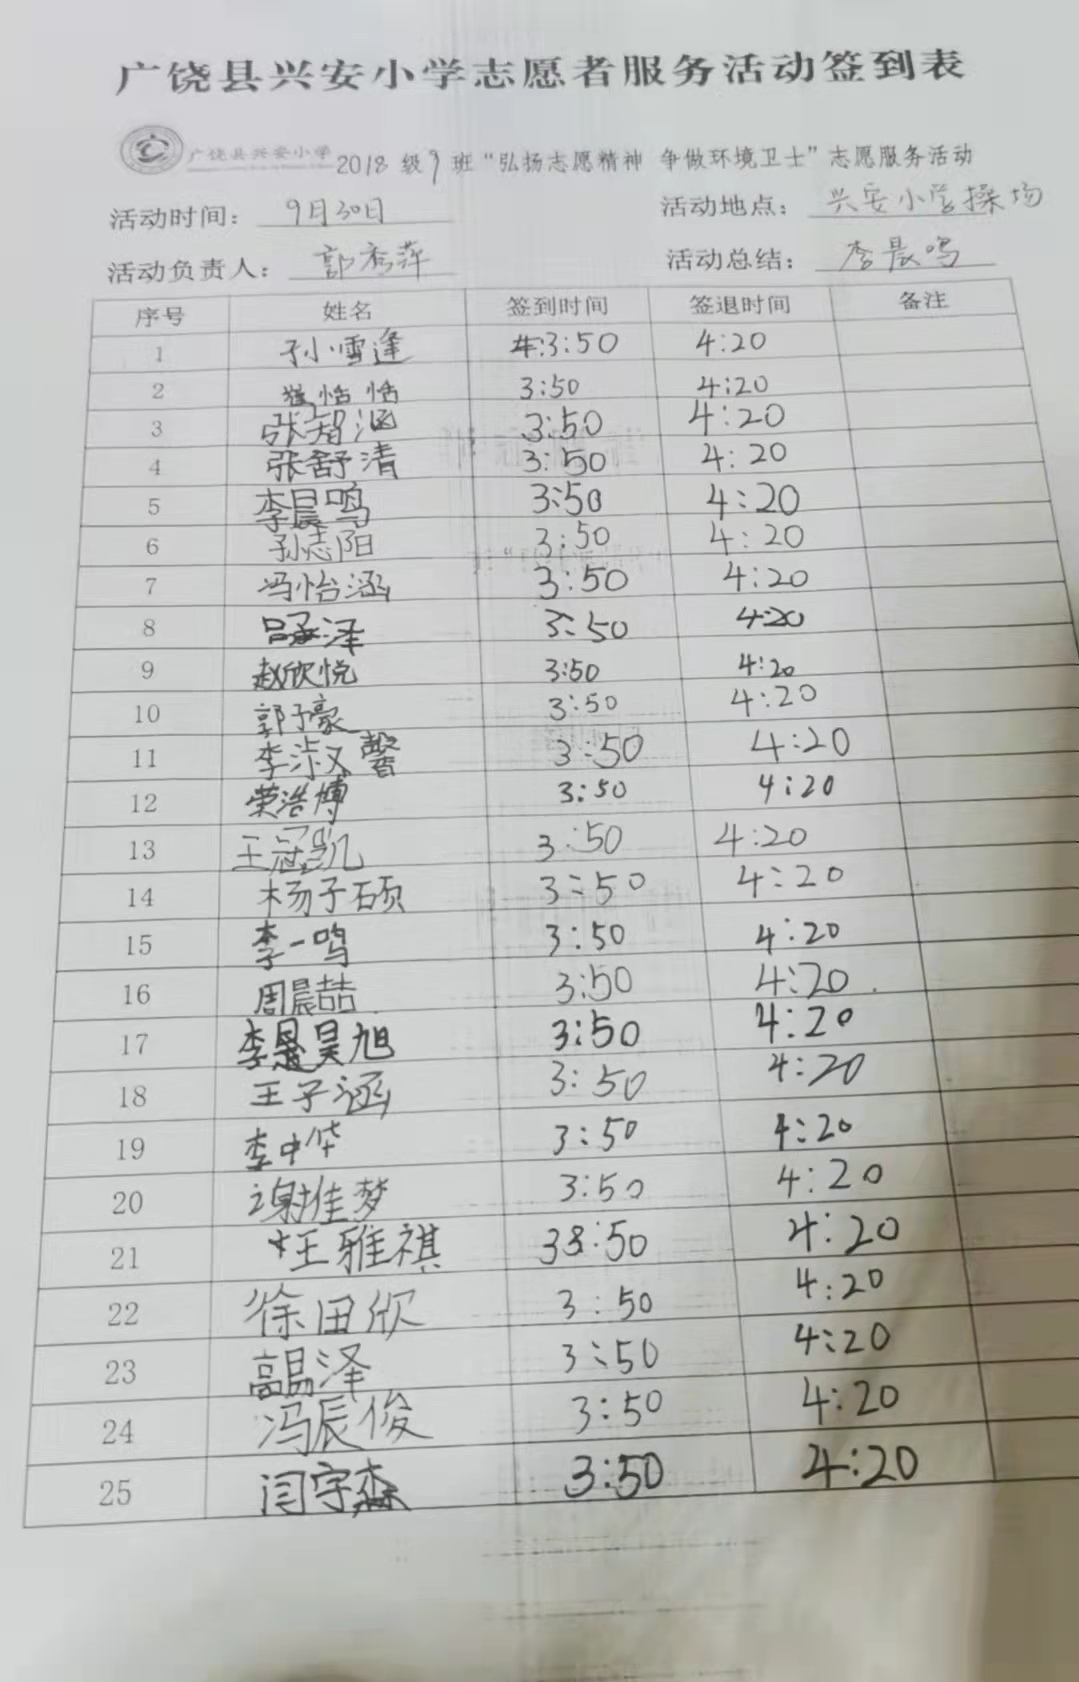 广饶县兴安小学志愿者服务活动签到表
广饶县兴安小学 2018 级 9 班“弘扬志愿精神 争做环境卫士”志愿服务活动
活动时间： 9月30日 活动地点： 兴安小学操场
活动负责人： 郭秀萍 活动总结： 李晨鸣
序号 姓名 签到时间 签退时间 备注
1 孙雪逢 3:50 4:20
2 恬恬 3:50 4:20
3 张智涵 3:50 4:20
4 张舒清 3:50 4:20
5 李晨鸣 3:50 4:20
6 孙志阳 3:50 4:20
7 冯怡涵 3:50 4:20
8 吕承泽 3:50 4:20
9 赵欣悦 3:50 4:20
10 郭子豪 3:50 4:20
11 李淑馨 3:50 4:20
12 荣浩博 3:50 4:20
13 王冠凯 3:50 4:20
14 杨子硕 3:50 4:20
15 李一鸣 3:50 4:20
16 周晨喆 3:50 4:20
17 李昊旭 3:50 4:20
18 王子涵 3:50 4:20
19 李中华 3:50 4:20
20 谢佳梦 3:50 4:20
21 王雅祺 3:50 4:20
22 徐田欣 3:50 4:20
23 高昌泽 3:50 4:20
24 冯辰俊 3:50 4:20
25 闫宇森 3:50 4:20